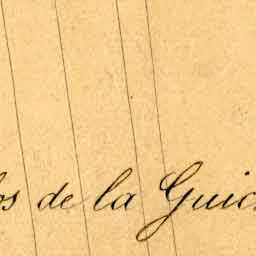 os de la Guic